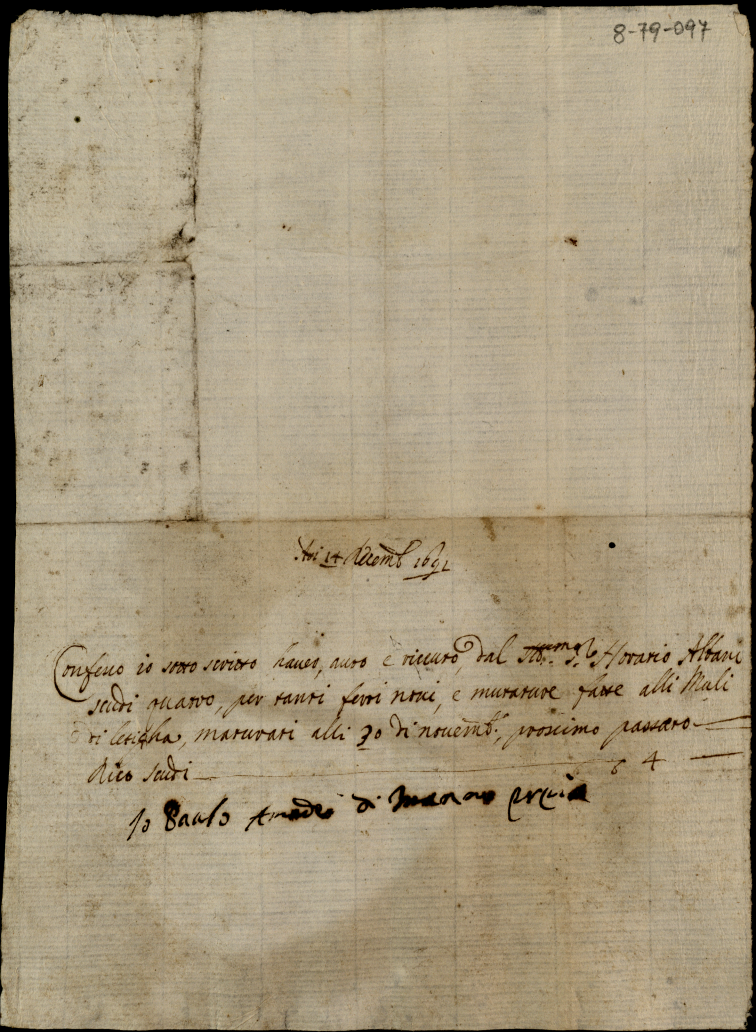 8-79-097
Adi 14 decemb 1691
Confesso io sotto scritto haver, auto e riceuto, dal Ill.umo S.e Horatio Albani
scudi quatro, per tanti ferri novi, e mutature fatte alli Muli
di letigha, maturati alli 30 di novemb.e, prossimo passato
dico scudi 4
Io Paulo Amadeo di mano propia